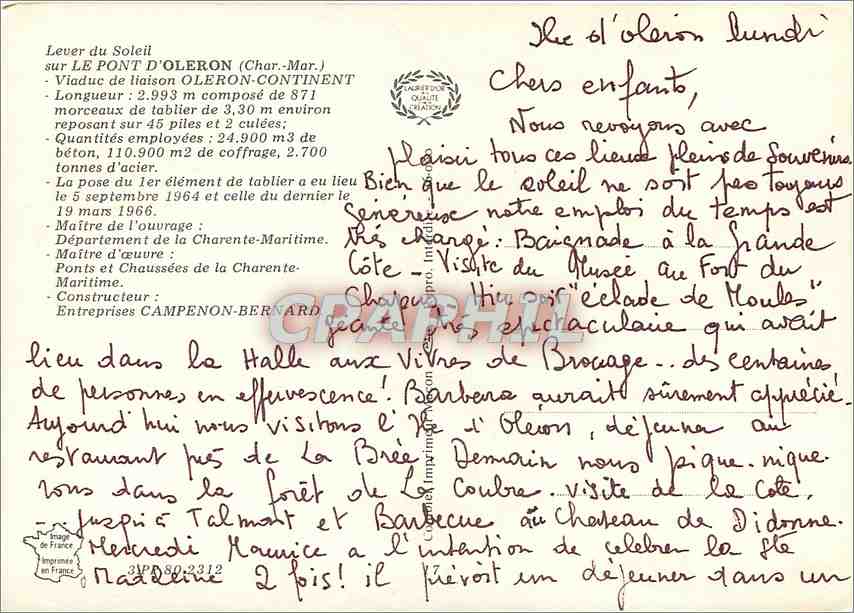 Lever du Soleil
sur LE PONT D'OLERON (Char.-Mar.)
- Viaduc de liaison OLERON-CONTINENT
- Longueur : 2.993 m composé de 871
morceaux de tablier de 3,30 m environ
reposant sur 45 piles et 2 culées;
- Quantités employées : 24.900 m3 de
béton, 110.900 m2 de coffrage, 2.700
tonnes d'acier.
- La pose du 1er élément de tablier a eu lieu
le 5 septembre 1964 et celle du dernier le
19 mars 1966.
- Maître de l'ouvrage :
Département de la Charente-Maritime.
- Maître d'œuvre :
Ponts et Chaussées de la Charente-
Maritime.
- Constructeur :
Entreprises CAMPENON-BERNARD
LAURIER D'OR
DE
QUALITÉ
CRÉATION
Ile d'oleron lundi
Chers enfants,
Nous revoyons avec
plaisir tous ces lieux pleins de souvenirs.
Bien que le soleil ne soit pas toujours
généreux notre emploi du temps est
très chargé : Baignade à la Grande
Côte - Visite du Musée au Fort du
Chapus. Hier soir "éclade de Moules"
géante très spectaculaire qui avait
lieu dans la Halle aux Vivres de Brouage... des centaines
de personnes en effervescence! Barbara aurait sûrement apprécié.
Aujourd'hui nous visitons l'Ile d'Oléron, déjeuner au
restaurant près de La Brée. Demain nous pique-nique-
rons dans la forêt de La Coubre. visite de la Côte.
- jusqu'à Talmont et Barbecue au Chateau de Didonne.
Mercredi Maurice a l'intention de celebrer la Ste
Madeleine 2 fois! il prévoit un déjeuner dans un
CPARHIL
Image
de France
Imprimée
en France
80 2312
7